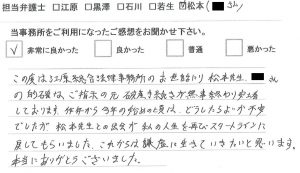 担当弁護士 □江原 □黒澤 □石川 □若生 ☑松本( さん)
当事務所をご利用になったご感想をお聞かせ下さい。
✓ 非常に良かった 良かった 普通 悪かった
この度は江原総合法律事務所のお世話になり 松本先生、
の的確な、ご指示の元 破産手続きが無事終わり安堵
しております。昨年から今年の始めの頃は、どうしようもない不安
でしたが 松本先生との出会が私の人生を再びスタートラインに
戻してもらいました。これからは謙虚に生きていきたいと思います。
本当にありがとうございました。